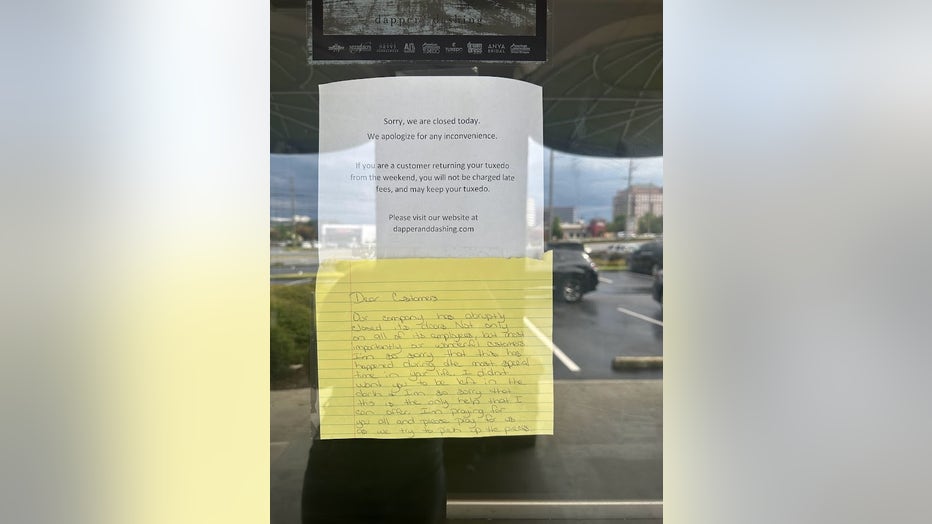 dapper dashing
TUXEDO
ANYA
BRIDAL
Sorry, we are closed today.
We apologize for any inconvenience.
If you are a customer returning your tuxedo
from the weekend, you will not be charged late
fees, and may keep your tuxedo.
Please visit our website at
dapperanddashing.com
Dear Customers
Our company has abruptly
closed its doors. Not only
on all of its employees, but most
importantly our wonderful customers
I'm so sorry that this has
happened during the most special
time in your life. I didn't
want you to be left in the
dark & I'm so sorry that
this is the only help that I
can offer. I'm praying for
you all and please pray for us
as we try to pick up the pieces